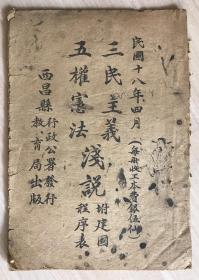 民國十八年四月
(每冊收工本費銀伍仙)
三民主義
五權憲法 淺說 附建國程序表
西昌縣 行政公署發行
教育局出版